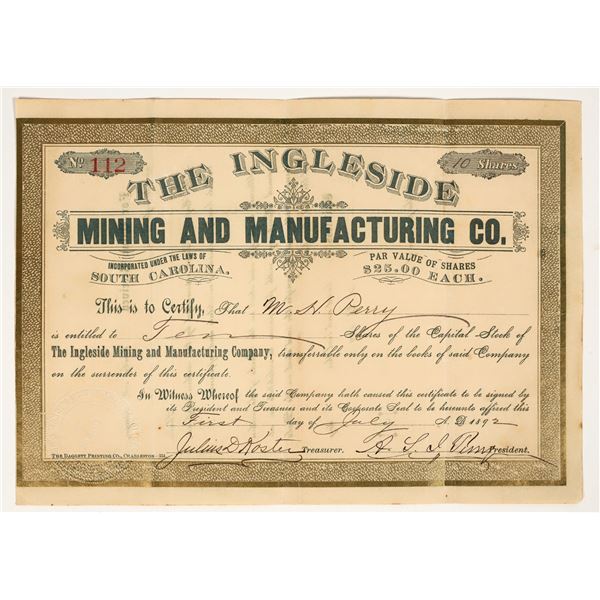 No 112
10 Shares
THE INGLESIDE
MINING AND MANUFACTURING CO.
INCORPORATED UNDER THE LAWS OF
SOUTH CAROLINA.
PAR VALUE OF SHARES
$25.00 EACH.
This is to Certify, That M. H. Perry
is entitled to Ten Shares of the Capital Stock of
The Ingleside Mining and Manufacturing Company, transferrable only on the books of said Company
on the surrender of this certificate.
In Witness Whereof the said Company hath caused this certificate to be signed by
its President and Treasurer and its Corporate Seal to be hereunto affixed this
First day of July A. D 1892
Julius D Koster Treasurer. President.
THE DAGGETT PRINTING CO., CHARLESTON